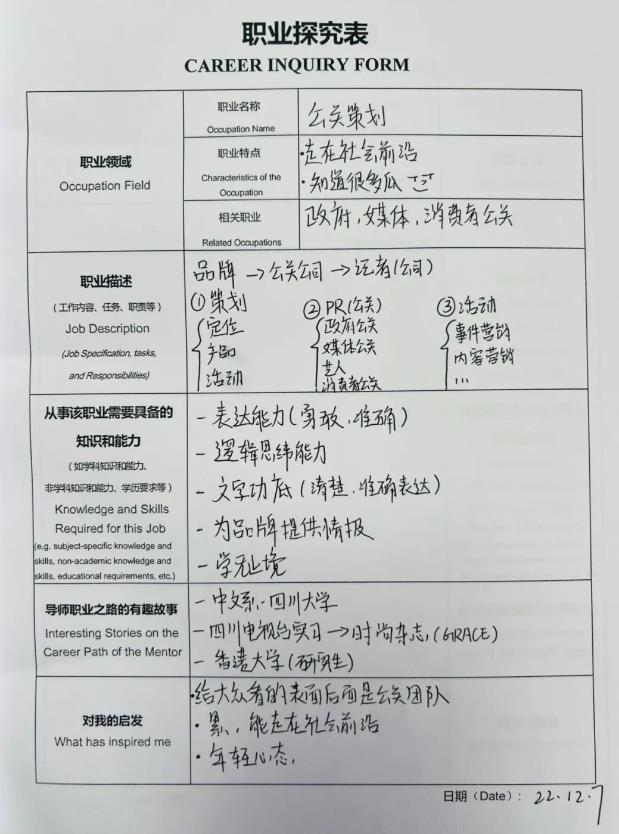 职业探究表
CAREER INQUIRY FORM
职业领域
Occupation Field
职业名称
Occupation Name
公关策划
职业特点
Characteristics of the
Occupation
·走在社会前沿
·知道很多瓜
相关职业
Related Occupations
政府,媒体,消费者公关
职业描述
(工作内容、任务、职责等)
Job Description
(Job Specification, tasks,
and Responsibilities)
品牌 → 公关公司 → 记者(公司)
① 策划
定位
产品
活动
② PR(公关)
政府公关
媒体公关
艺人
消费者公关
③ 活动
事件营销
内容营销
...
从事该职业需要具备的
知识和能力
(如学科知识和能力、
非学科知识和能力、学历要求等)
Knowledge and Skills
Required for this Job
(e.g. subject-specific knowledge and
skills, non-academic knowledge and
skills, educational requirements, etc.)
- 表达能力(勇敢,准确)
- 逻辑思维能力
- 文字功底(清楚,准确表达)
- 为品牌提供情报
- 学无止境
导师职业之路的有趣故事
Interesting Stories on the
Career Path of the Mentor
- 中文系 - 四川大学
- 四川电视台实习 → 时尚杂志,(GRACE)
- 香港大学(研究生)
对我的启发
What has inspired me
·给大众看的表面后面是公关团队
·累,能走在社会前沿
·年轻心态,
日期(Date): 22.12.7